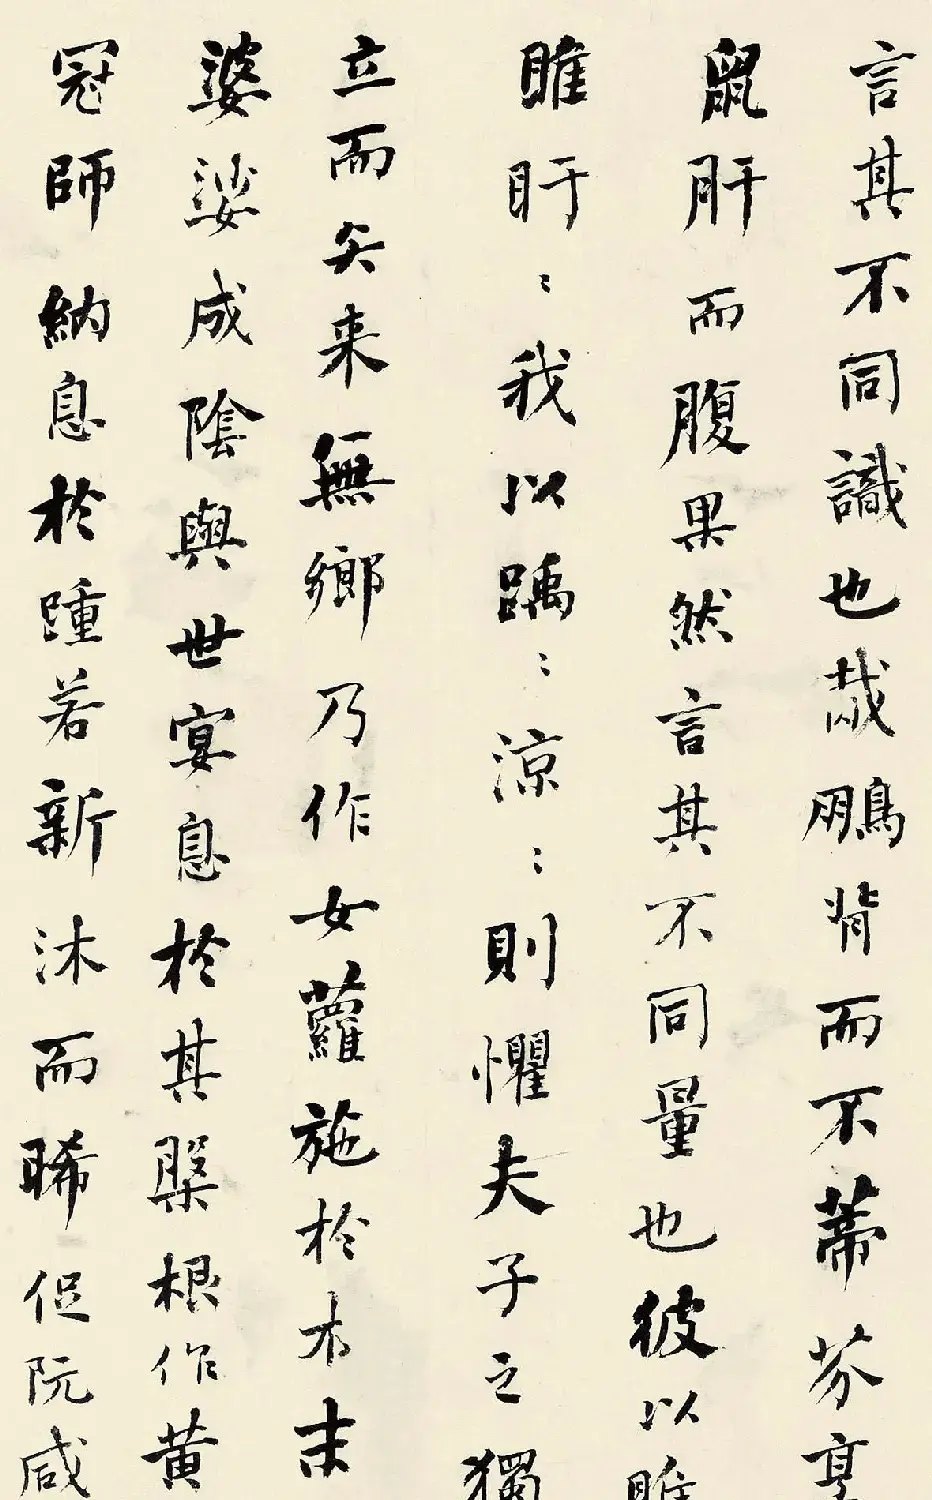 言其不同識也哉鵬背而不蒂芥烹
鼠肝而腹果然言其不同量也彼以睢
睢盱:我以踽:涼:則懼夫子之獨
立而矢来無鄉乃作女蘿施於木末
婆娑成陰與世宴息於其槃根作黄
冠師納息於踵若新沐而晞促阮咸